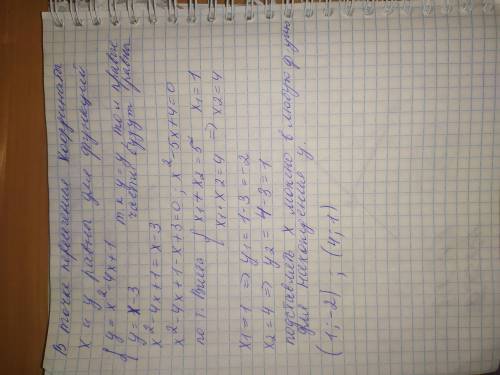 В точке пересечения координаты
x и y равны для функций
{ y = x² - 4x + 1
y = x - 3
т.к y = y, то и правые
части будут равны
x² - 4x + 1 = x - 3
x² - 4x + 1 - x + 3 = 0; x² - 5x + 4 = 0
по т. Виета { x1 + x2 = 5 x1 = 1
x1 · x2 = 4 => x2 = 4
x1 = 1 => y1 = 1 - 3 = -2
x2 = 4 => y2 = 4 - 3 = 1
подставлять x можно в любую ф-цию
для нахождения y.
(1; -2) ; (4; 1)